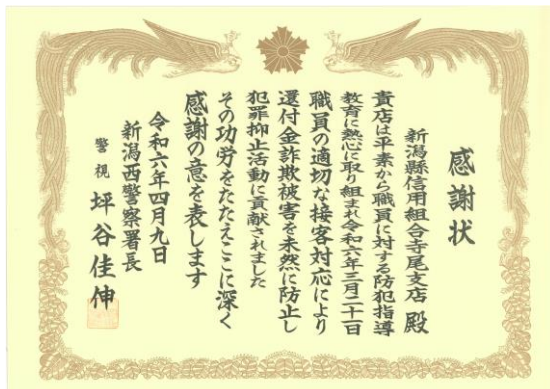 感謝状
新潟縣信用組合寺尾支店 殿
貴店は平素から職員に対する防犯指導
教育に熱心に取り組まれ令和六年三月二十一日
職員の適切な接客対応により
還付金詐欺被害を未然に防止し
犯罪抑止活動に貢献されました
その功労をたたえここに深く
感謝の意を表します
令和六年四月九日
新潟西警察署長
警視 坪谷佳伸